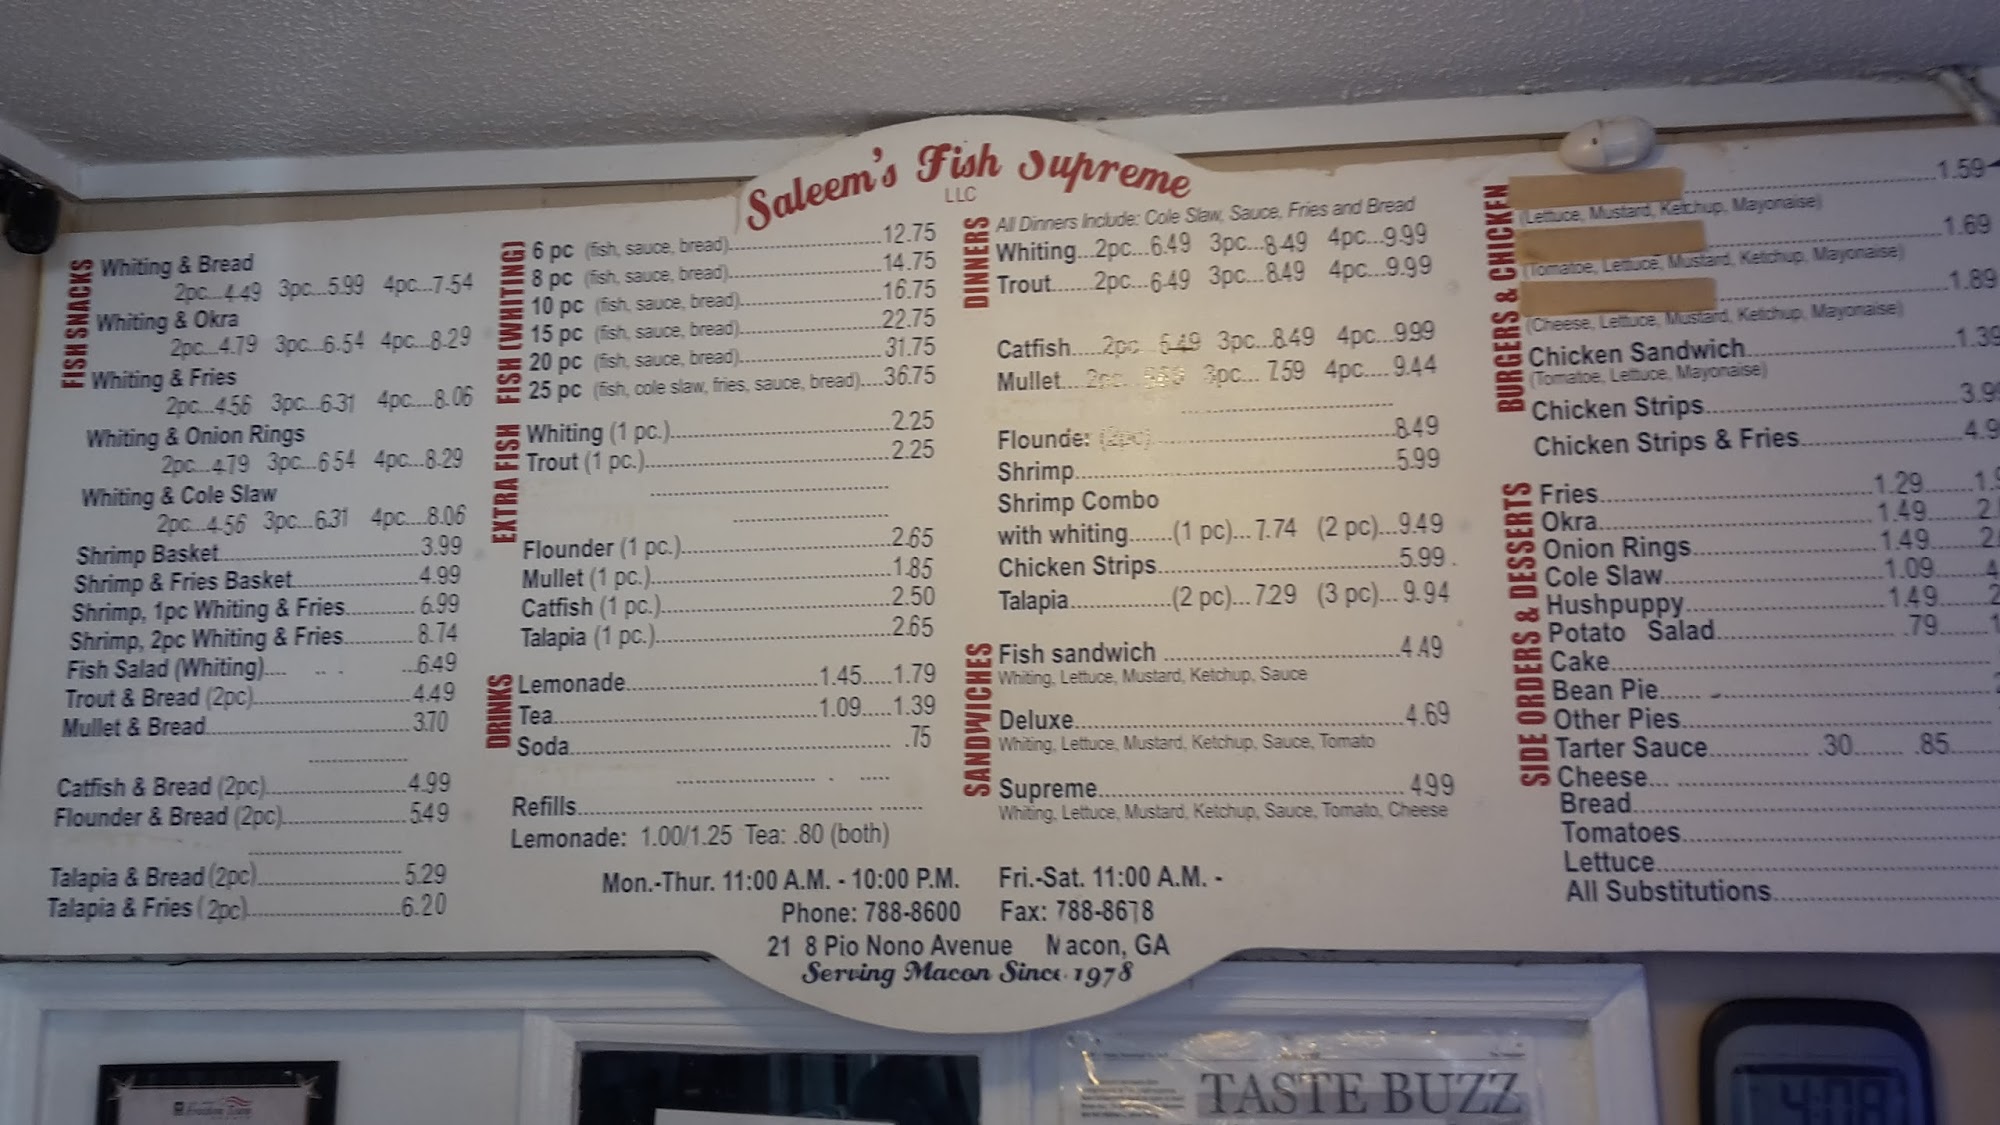 Saleem's Fish Supreme
LLC
FISH SNACKS
Whiting & Bread
2pc...4.49 3pc...5.99 4pc...7.54
Whiting & Okra
2pc...4.79 3pc...6.54 4pc...8.29
Whiting & Fries
2pc...4.56 3pc...6.31 4pc....8.06
Whiting & Onion Rings
2pc...4.79 3pc...6.54 4pc...8.29
Whiting & Cole Slaw
2pc...4.56 3pc...6.31 4pc....8.06
Shrimp Basket...3.99
Shrimp & Fries Basket...4.99
Shrimp, 1pc Whiting & Fries...6.99
Shrimp, 2pc Whiting & Fries...8.74
Fish Salad (Whiting)...6.49
Trout & Bread (2pc)...4.49
Mullet & Bread...3.70
Catfish & Bread (2pc)...4.99
Flounder & Bread (2pc)...5.49
Talapia & Bread (2pc)...5.29
Talapia & Fries (2pc)...6.20
FISH (WHITING)
6 pc (fish, sauce, bread)...12.75
8 pc (fish, sauce, bread)...14.75
10 pc (fish, sauce, bread)...16.75
15 pc (fish, sauce, bread)...22.75
20 pc (fish, sauce, bread)...31.75
25 pc (fish, cole slaw, fries, sauce, bread)....36.75
EXTRA FISH
Whiting (1 pc.)...2.25
Trout (1 pc.)...2.25
Flounder (1 pc.)...2.65
Mullet (1 pc.)...1.85
Catfish (1 pc.)...2.50
Talapia (1 pc.)...2.65
DRINKS
Lemonade...1.45.....1.79
Tea...1.09.....1.39
Soda... .75
Refills...
Lemonade: 1.00/1.25 Tea: .80 (both)
DINNERS
All Dinners Include: Cole Slaw, Sauce, Fries and Bread
Whiting...2pc...6.49 3pc...8.49 4pc...9.99
Trout......2pc...6.49 3pc...8.49 4pc...9.99
Catfish.....2pc 6.49 3pc...8.49 4pc...9.99
Mullet....2pc... 3pc... 7.59 4pc.... 9.44
Flounde: (2pc)...8.49
Shrimp...5.99
Shrimp Combo
with whiting.......(1 pc)... 7.74 (2 pc)...9.49
Chicken Strips...5.99
Talapia...(2 pc)... 7.29 (3 pc)... 9.94
SANDWICHES
Fish sandwich ...4.49
Whiting, Lettuce, Mustard, Ketchup, Sauce
Deluxe...4.69
Whiting, Lettuce, Mustard, Ketchup, Sauce, Tomato
Supreme...4.99
Whiting, Lettuce, Mustard, Ketchup, Sauce, Tomato, Cheese
BURGERS & CHICKEN
...1.59
(Lettuce, Mustard, Ketchup, Mayonaise)
...1.69
(Tomatoe, Lettuce, Mustard, Ketchup, Mayonaise)
...1.89
(Cheese, Lettuce, Mustard, Ketchup, Mayonaise)
Chicken Sandwich...1.39
(Tomatoe, Lettuce, Mayonaise)
Chicken Strips...3.9
Chicken Strips & Fries...4.9
SIDE ORDERS & DESSERTS
Fries...1.29
Okra...1.49
Onion Rings...1.49
Cole Slaw...1.09
Hushpuppy...1.49
Potato Salad... .79
Cake...
Bean Pie...
Other Pies...
Tarter Sauce... .30....... .85...
Cheese...
Bread...
Tomatoes...
Lettuce...
All Substitutions...
Mon.-Thur. 11:00 A.M. - 10:00 P.M. Fri.-Sat. 11:00 A.M. -
Phone: 788-8600 Fax: 788-8678
21 8 Pio Nono Avenue Macon, GA
Serving Macon Since 1978
TASTE BUZZ
4:08